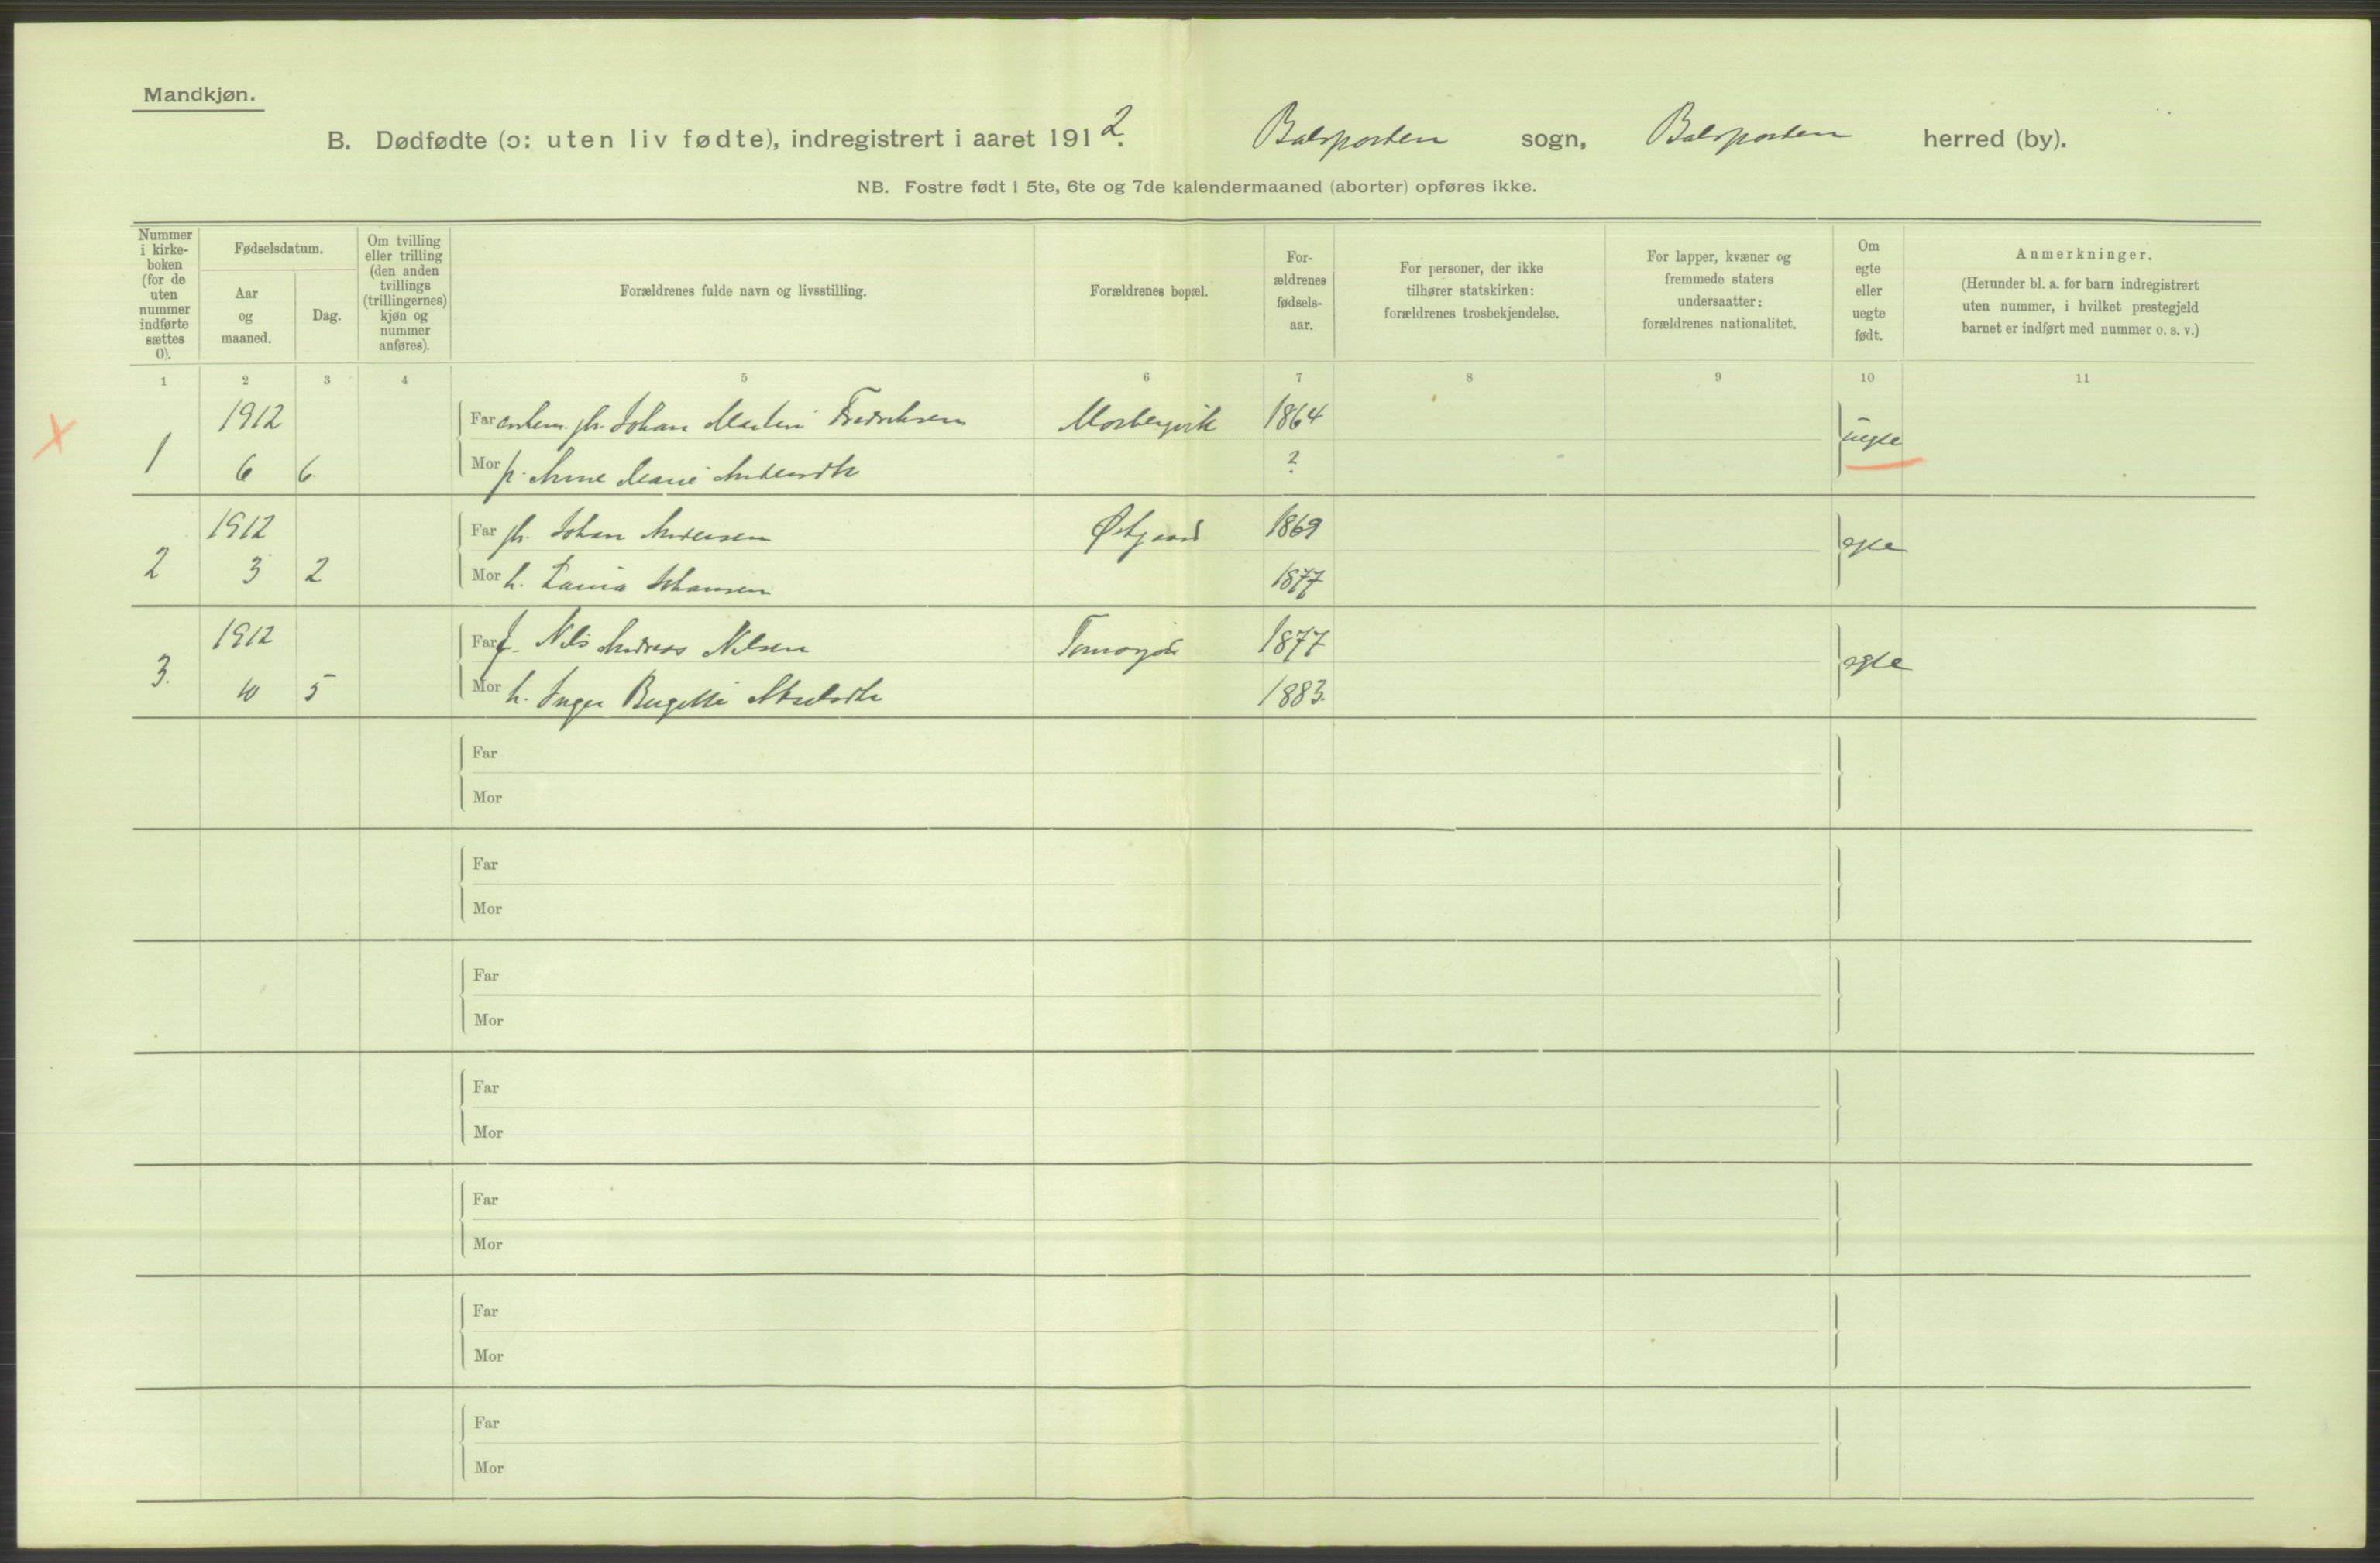 Mandkjøn.
B. Dødfødte (ɔ: uten liv fødte), indregistrert i aaret 1912. Balsfjorden sogn, Balsfjorden herred (by).
NB. Fostre født i 5te, 6te og 7de kalendermaaned (aborter) opføres ikke.
Nummer
i kirke-
boken
(for de
uten
nummer
indførte
sættes
0).
Fødselsdatum.
Aar
og
maaned.
Dag.
Om tvilling
eller trilling
(den anden
tvillings
(trillingernes)
kjøn og
nummer
anføres).
Forældrenes fulde navn og livsstilling.
Forældrenes bopæl.
For-
ældrenes
fødsels-
aar.
For personer, der ikke
tilhører statskirken:
forældrenes trosbekjendelse.
For lapper, kvæner og
fremmede staters
undersaatter:
forældrenes nationalitet.
Om
egte
eller
uegte
født.
Anmerkninger.
(Herunder bl. a. for barn indregistrert
uten nummer, i hvilket prestegjeld
barnet er indført med nummer o. s. v.)
1 2 3 4 5 6 7 8 9 10 11
1912 Far Johan Martin Fredriksen 1864
uegte
1 6 6. Mor p. Anne Marie ?
1912 Far Johan Andersen Østgaard 1869
egte
2 3 2 Mor h. Johansen 1877
1912 Far Nils Andreas Nilsen 1877
egte
3. 10 5 Mor h. Inger 1883.
Far
Mor
Far
Mor
Far
Mor
Far
Mor
Far
Mor
Far
Mor
Far
Mor